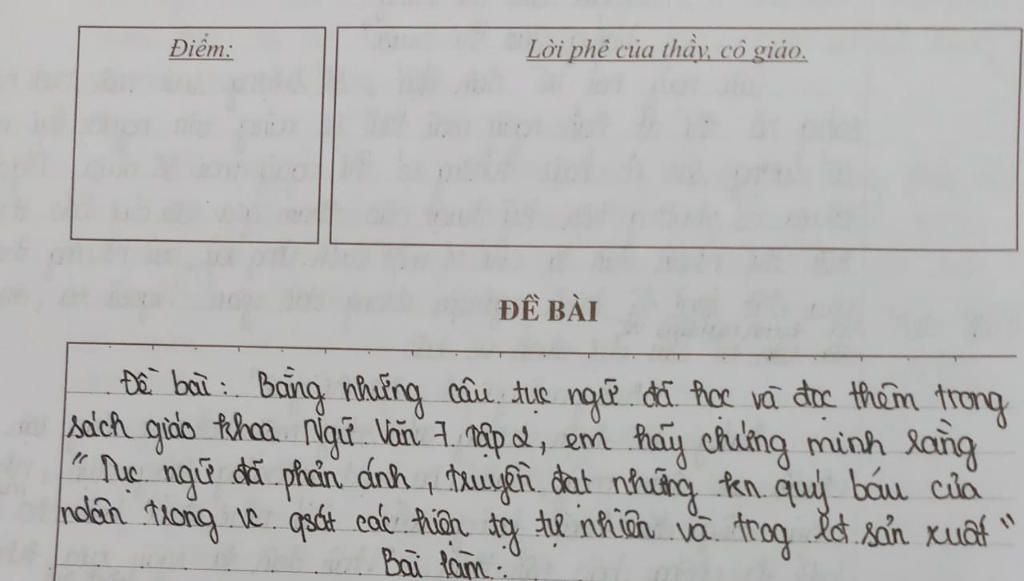 Điểm:
Lời phê của thầy, cô giáo.
ĐỀ BÀI
Đề bài: Bằng những câu tục ngữ đã học và đọc thêm trong
sách giáo khoa Ngữ Văn 7 tập 2, em hãy chứng minh rằng
"Tục ngữ đã phản ánh, truyền đạt những kn quý báu của
ndân trong vc qsát các hiện tg tự nhiên và trog lđ sản xuất"
Bài làm: